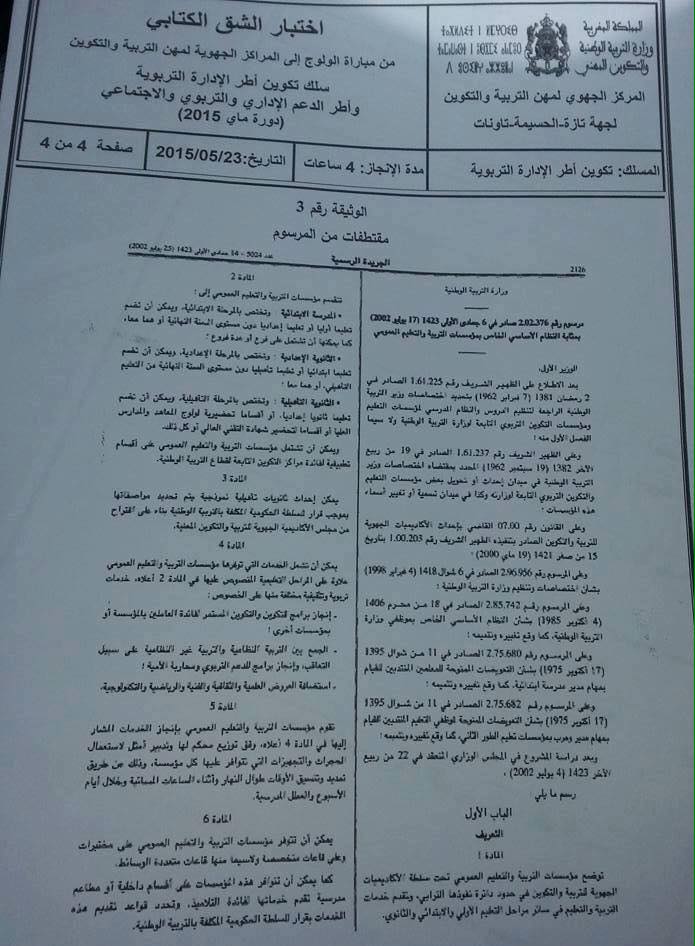 المملكة المغربية
وزارة التربية الوطنية
والتكوين المهني
ⵜⴰⴳⵍⴷⵉⵜ ⵏ ⵍⵎⵖⵔⵉⴱ
المركز الجهوي لمهن التربية والتكوين
لجهة تازة-الحسيمة-تاونات
اختبار الشق الكتابي
من مباراة الولوج إلى المراكز الجهوية لمهن التربية والتكوين
سلك تكوين أطر الإدارة التربوية
وأطر الدعم الإداري والتربوي والاجتماعي
(دورة ماي 2015)
المسلك: تكوين أطر الإدارة التربوية
مدة الإنجاز: 4 ساعات
التاريخ:2015/05/23
صفحة 4 من 4
الوثيقة رقم 3
مقتطفات من المرسوم
2126
الجريدة الرسمية
عدد 5024 - 14 جمادى الأولى 1423 (25 يوليو 2002)
وزارة التربية الوطنية
مرسوم رقم 2.02.376 صادر في 6 جمادى الأولى 1423 (17 يوليو 2002)
بمثابة النظام الأساسي الخاص بمؤسسات التربية والتعليم العمومي
الوزير الأول،
بعد الاطلاع على الظهير الشريف رقم 1.61.225 الصادر في
2 رمضان 1381 (7 فبراير 1962) بتحديد اختصاصات وزير التربية
الوطنية الراجعة لتنظيم الدروس والنظام المدرسي لمؤسسات التعليم
ومؤسسات التكوين التربوي التابعة لوزارة التربية الوطنية ولا سيما
الفصل الأول منه ؛
وعلى الظهير الشريف رقم 1.61.237 الصادر في 19 من ربيع
الآخر 1382 (19 سبتمبر 1962) المحدد بمقتضاه اختصاصات وزير
التربية الوطنية في ميدان إحداث أو تحويل بعض مؤسسات التعليم
والتكوين التربوي التابعة لوزارته وكذا في ميدان تسمية أو تغيير أسماء
هذه المؤسسات ؛
وعلى القانون رقم 07.00 القاضي بإحداث الأكاديميات الجهوية
للتربية والتكوين الصادر بتنفيذه الظهير الشريف رقم 1.00.203 بتاريخ
15 من صفر 1421 (19 ماي 2000) ؛
وعلى المرسوم رقم 2.96.956 الصادر في 6 شوال 1418 (4 فبراير 1998)
بشأن اختصاصات وتنظيم وزارة التربية الوطنية ؛
وعلى المرسوم رقم 2.85.742 الصادر في 18 من محرم 1406
(4 أكتوبر 1985) بشأن النظام الأساسي الخاص بموظفي وزارة
التربية الوطنية، كما وقع تغييره وتتميمه ؛
وعلى المرسوم رقم 2.75.680 الصادر في 11 من شوال 1395
(17 أكتوبر 1975) بشأن التعويضات الممنوحة للمعلمين المنتدبين للقيام
بمهام مدير مدرسة ابتدائية، كما وقع تغييره وتتميمه ؛
وعلى المرسوم رقم 2.75.682 الصادر في 11 من شوال 1395
(17 أكتوبر 1975) بشأن التعويضات الممنوحة لموظفي التعليم المنتدبين للقيام
بمهام مدير ومدرب بمؤسسات تعليم الطور الثاني، كما وقع تغييره وتتميمه ؛
وبعد دراسة المشروع في المجلس الوزاري المنعقد في 22 من ربيع
الآخر 1423 (4 يوليو 2002) ،
رسم ما يلي :
الباب الأول
التعريف
المادة 1
توضع مؤسسات التربية والتعليم العمومي تحت سلطة الأكاديميات
الجهوية للتربية والتكوين في حدود دائرة نفوذها الترابي، وتقدم خدمات
التربية والتعليم في سائر مراحل التعليم الأولي والابتدائي والثانوي.
المادة 2
تنقسم مؤسسات التربية والتعليم العمومي إلى :
• المدرسة الابتدائية : وتختص بالمرحلة الابتدائية، ويمكن أن تضم
تعليما أوليا أو تعليما إعداديا دون مستوى السنة النهائية أو هما معا،
كما يمكنها أن تشتمل على فرع أو عدة فروع ؛
• الثانوية الإعدادية : وتختص بالمرحلة الإعدادية، ويمكن أن تضم
تعليما ابتدائيا أو تعليما تأهيليا دون مستوى السنة النهائية من التعليم
التأهيلي، أو هما معا ؛
• الثانوية التأهيلية : وتختص بالمرحلة التأهيلية، ويمكن أن تضم
تعليما ثانويا إعداديا، أو أقساما تحضيرية لولوج المعاهد والمدارس
العليا أو أقساما لتحضير شهادة التقني العالي أو كل ذلك.
ويمكن أن تشتمل مؤسسات التربية والتعليم العمومي على أقسام
تطبيقية لفائدة مراكز التكوين التابعة لقطاع التربية الوطنية.
المادة 3
يمكن إحداث ثانويات تأهيلية نموذجية يتم تحديد مواصفاتها
بموجب قرار للسلطة الحكومية المكلفة بالتربية الوطنية بناء على اقتراح
من مجلس الأكاديمية الجهوية للتربية والتكوين المعنية.
المادة 4
يمكن أن تشمل الخدمات التي توفرها مؤسسات التربية والتعليم العمومي
علاوة على المراحل التعليمية المنصوص عليها في المادة 2 أعلاه، خدمات
تربوية وتثقيفية مختلفة منها على الخصوص :
- إنجاز برامج للتكوين والتكوين المستمر لفائدة العاملين بالمؤسسة أو
بمؤسسات أخرى ؛
- الجمع بين التربية النظامية والتربية غير النظامية على سبيل
التعاقب، وإنجاز برامج للدعم التربوي ومحاربة الأمية ؛
- استضافة العروض العلمية والثقافية والفنية والرياضية والتكنولوجية.
المادة 5
تقوم مؤسسات التربية والتعليم العمومي بإنجاز الخدمات المشار
إليها في المادة 4 أعلاه، وفق توزيع محكم لها وتدبير أمثل لاستعمال
الحجرات والتجهيزات التي تتوافر عليها كل مؤسسة، وذلك عن طريق
تمديد وتنسيق الأوقات طوال النهار وأثناء الساعات المسائية وخلال أيام
الأسبوع والعطل المدرسية.
المادة 6
يمكن أن تتوفر هذه المؤسسات التربية والتعليم العمومي على مختبرات
وعلى قاعات متخصصة ولاسيما منها قاعات متعددة الوسائط.
كما يمكن أن تتوافر هذه المؤسسات على أقسام داخلية أو مطاعم
مدرسية تقدم خدماتها لفائدة التلاميذ، وتحدد قواعد تقديم هذه
الخدمات بقرار للسلطة الحكومية المكلفة بالتربية الوطنية.